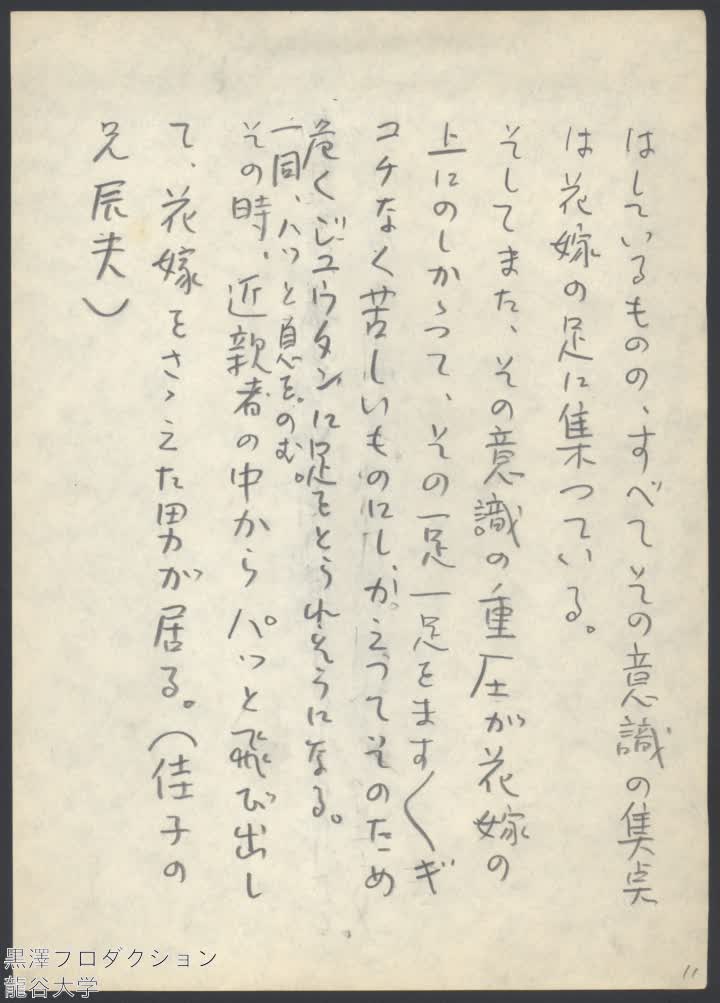 はしているものの、すべてその意識の集点
は花嫁の足に集つている。
そしてまた、その意識の重圧が花嫁の
上にのしかゝつて、その一足一足をます〱ギ
コチなく苦しいものにし、かえつてそのため
危くジュウタンに足をとられそうになる。
一同、ハッと息をのむ。
その時、近親者の中からパッと飛び出し
て、花嫁をさゝえた男が居る。(佳子の
兄辰夫)
11
黒澤プロダクション
龍谷大学